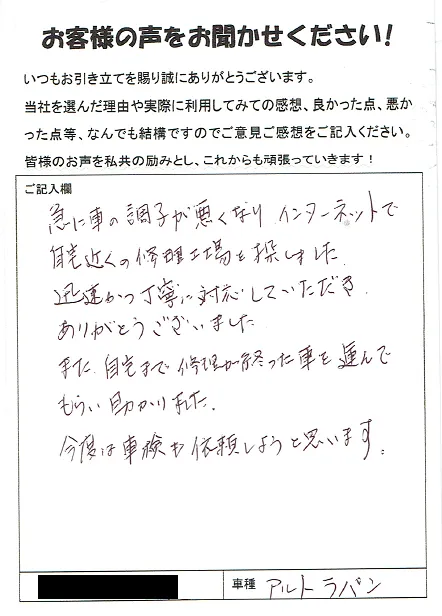 お客様の声をお聞かせください!
いつもお引き立てを賜り誠にありがとうございます。
当社を選んだ理由や実際に利用してみての感想、良かった点、悪か
った点等、なんでも結構ですのでご意見ご感想をご記入ください。
皆様のお声を私共の励みとし、これからも頑張っていきます！
ご記入欄
急に車の調子が悪くなり インターネットで
自宅近くの修理工場を探しました.
迅速かつ丁寧に対応していただき.
ありがとうございました.
また.自宅まで修理が終った車を運んで
もらい助かりました.
今度は車検も依頼しようと思います。
車種 アルト ラパン